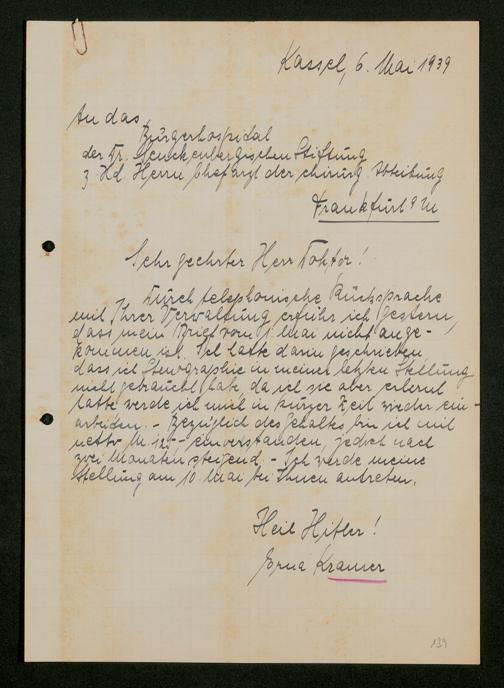 Kassel, 6. Mai 1939
An das
Bürgerhospital
der Dr. Senckenbergischen Stiftung
z. Hd. Herrn Chefarzt der chirurg. Abteilung
Frankfurt a M
Sehr geehrter Herr Doktor!
Durch telephonische Rücksprache
mit Ihrer Verwaltung erfuhr ich gestern,
dass mein Brief vom 1. Mai nicht ange-
kommen ist. Ich hatte darin geschrieben,
dass ich Stenographie in meiner letzten Stellung
nicht gebraucht habe da ich sie aber erlernt
hatte werde ich mich in kurzer Zeit wieder ein-
arbeiten. - Bezüglich des Gehaltes bin ich mit
netto M. einverstanden, jedoch nach
zwei Monaten steigend. - Ich werde meine
Stellung am 10. Mai bei Ihnen antreten.
Heil Hitler!
Erna Kramer
139